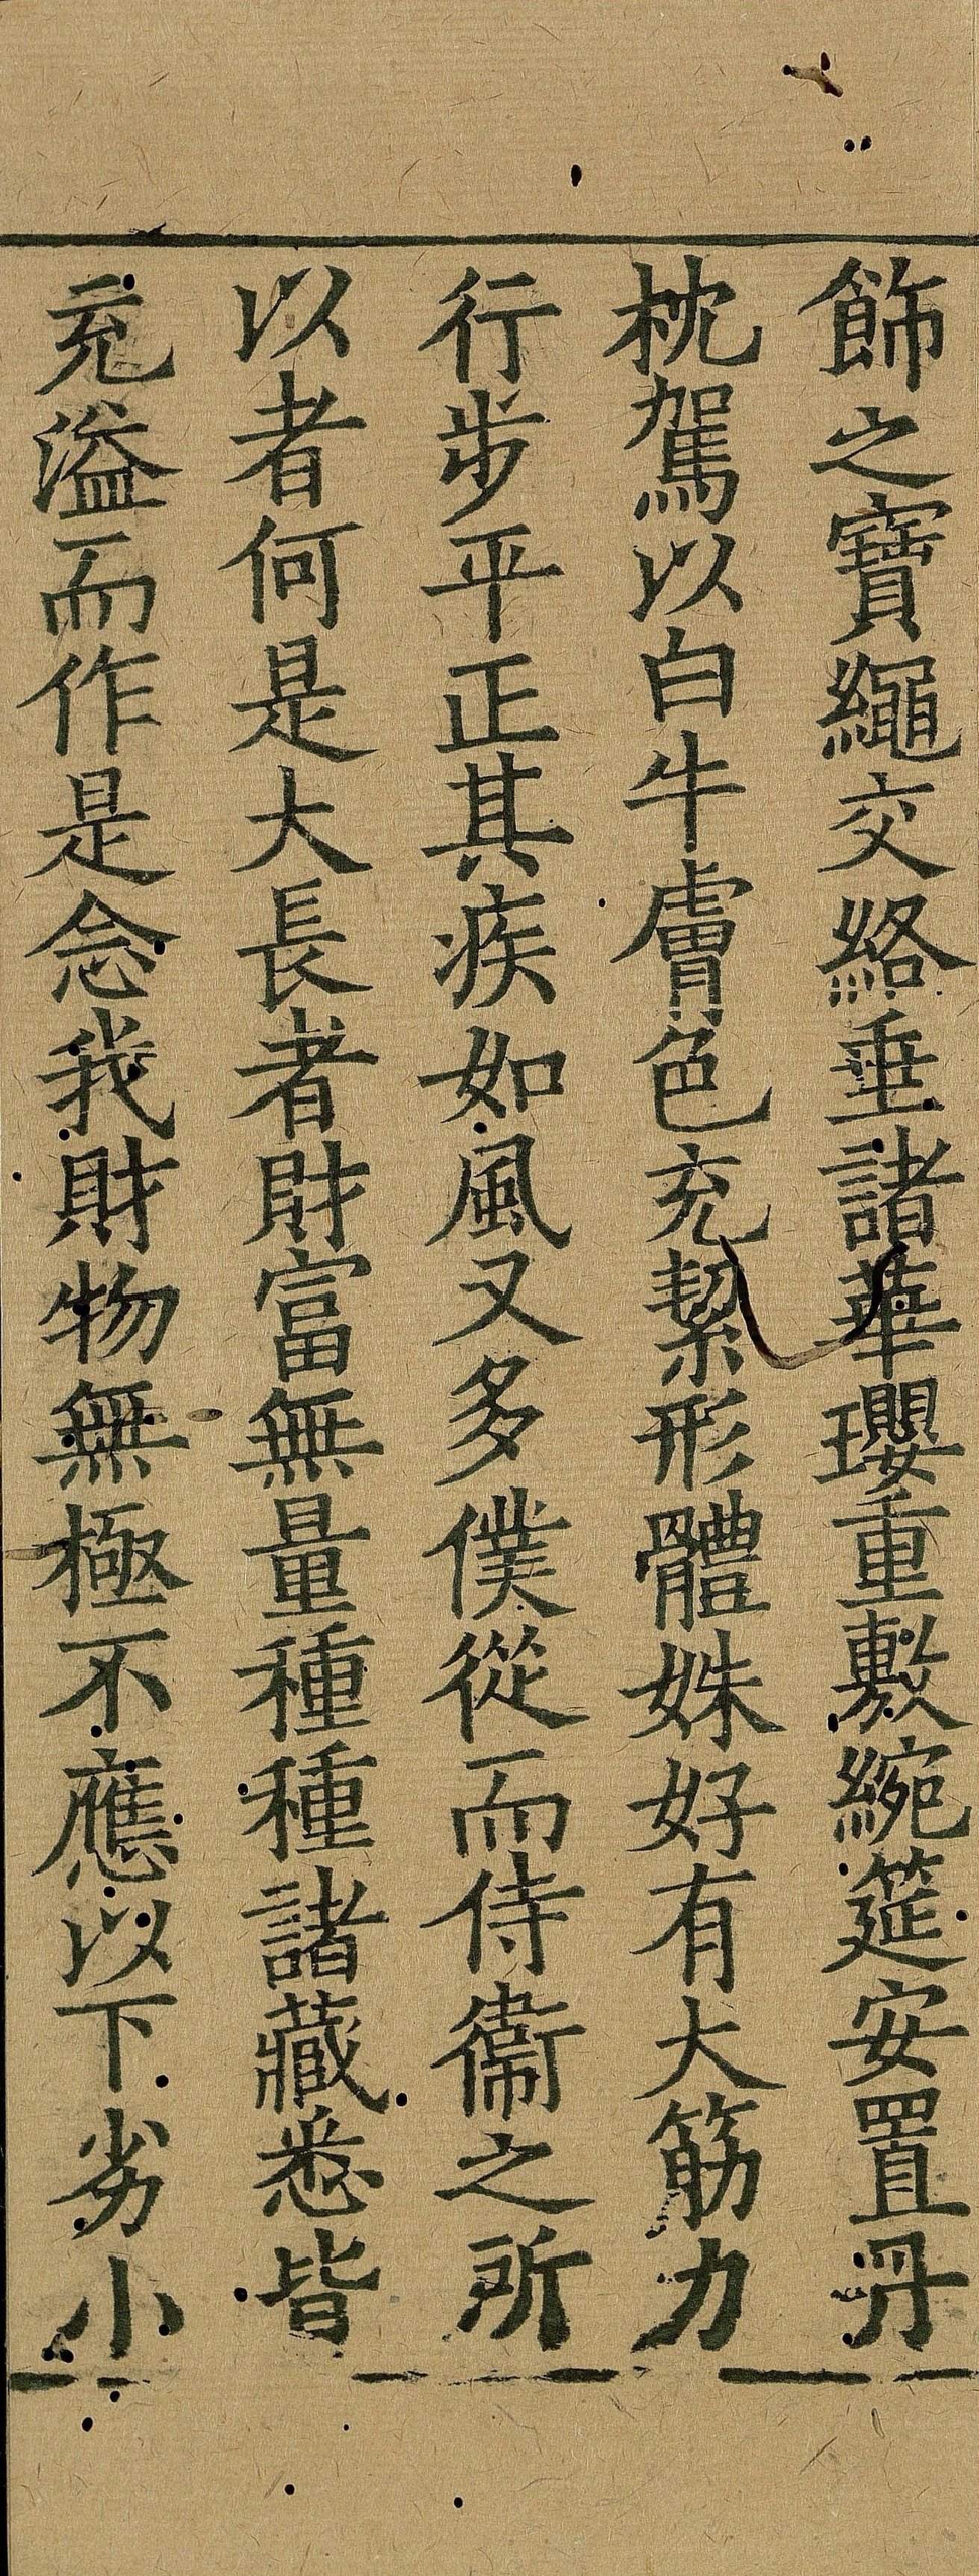 飾之寶繩交絡垂諸華瓔重敷綩筵安置丹
枕駕以白牛膚色充絜形體姝好有大筋力
行步平正其疾如風又多僕從而侍衞之所
以者何是大長者財富無量種種諸藏悉皆
充溢而作是念我財物無極不應以下劣小